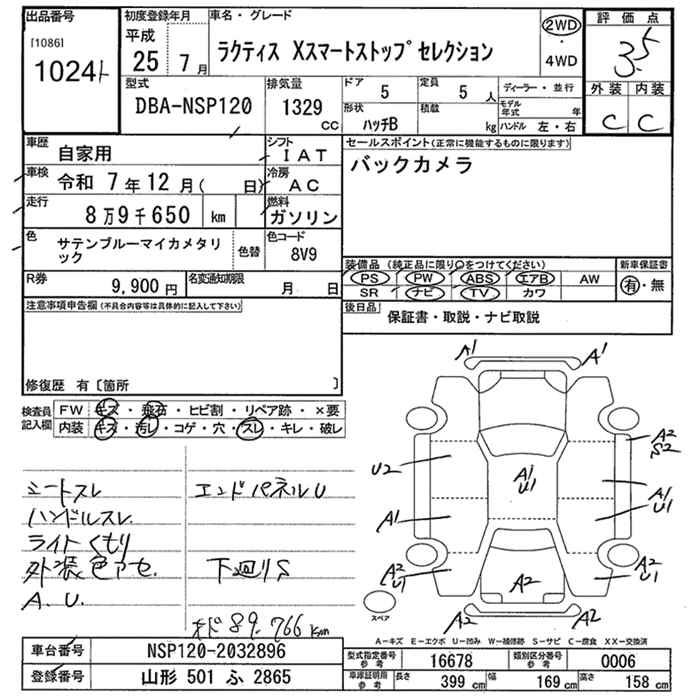 出品番号
[1086]
1024ト
初度登録年月
平成
25 7月
車名・グレード
ラクティス Xスマートストップセレクション
2WD
・
4WD
評価点
3.5
外装 内装
C C
型式
DBA-NSP120
排気量
1329
CC
ドア
5
定員
5 人
形状
ハッチB
積載
kg
ディーラー・並行
モデル年式 年
ハンドル 左・右
車歴
自家用
シフト
IAT
車検
令和 7年12月( 日)
冷房
AC
走行
8万9千650 km
燃料
ガソリン
色
サテンブルーマイカメタリック
色替
色コード
8V9
R券
9,900円
名変通知期限
月 日
セールスポイント(正常に機能するものに限ります)
バックカメラ
装備品(純正品に限り○をつけてください)
PS PW ABS エアB AW
SR ナビ TV カワ
新車保証書
有・無
後日品
保証書・取説・ナビ取説
注意事項申告欄(不具合内容等は具体的に記入して下さい)
修復歴 有〔箇所 〕
検査員記入欄
FW キズ・飛石・ヒビ割・リペア跡・×要
内装 キズ・汚レ・コゲ・穴・スレ・キレ・破レ
シートスレ
ハンドルスレ
ライトくもり
外装色アセ.
A.U.
エンドパネルU
下廻りS
オド89.766km
A1
A1
A2
S2
U2
A1
U1
A1
U1
A1
A2
U1
A2
U1
A2
A2
A2
スペア
A-キズ E-エクボ U-凹み W-補修跡 S-サビ C-腐食 XX-交換済
車台番号
NSP120-2032896
登録番号
山形 501 ふ 2865
型式指定番号
参考
16678
類別区分番号
参考
0006
車庫証明用
参考
長さ
399 cm
幅
169 cm
高さ
158 cm